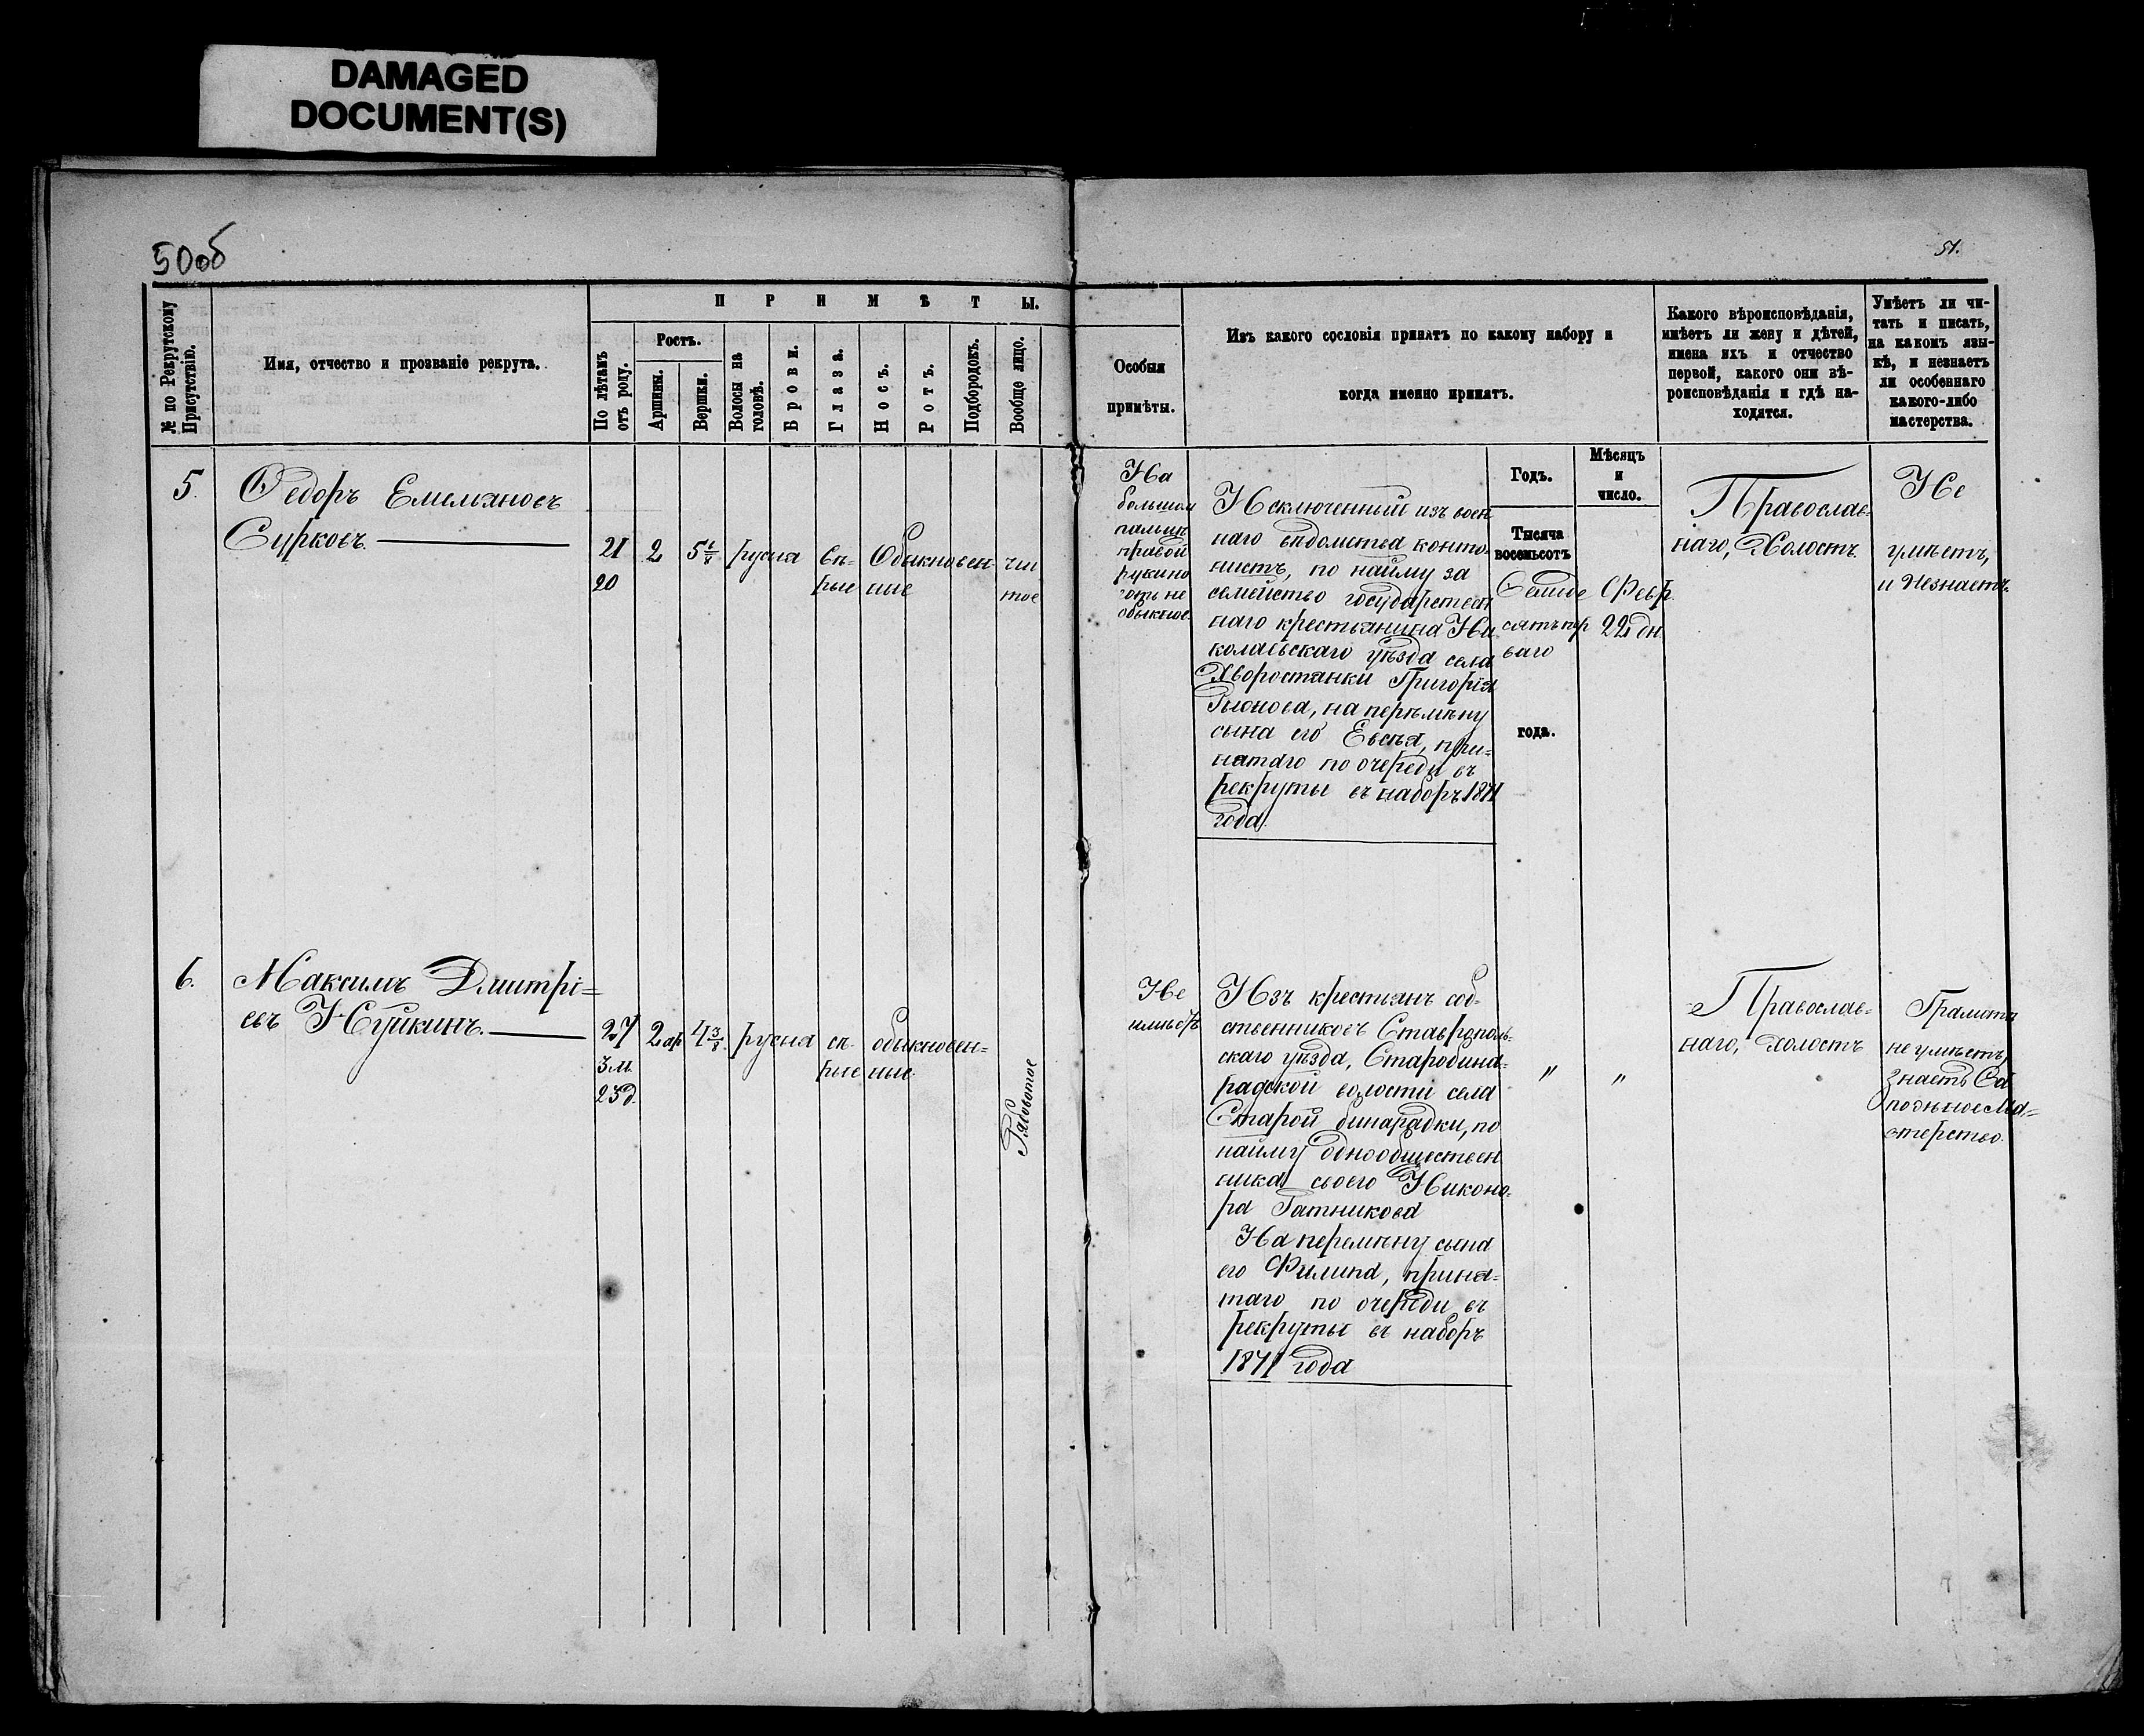 DAMAGED
DOCUMENT(S)
50об
51.
№ по Рекрутскому
Присутствію.
Имя, отчество и прозваніе рекрута.
ПРИМѢТЫ.
По лѣтамъ
отъ роду.
Ростъ.
Аршины.
Вершки.
Волосы на
головѣ.
Брови.
Глаза.
Носъ.
Ротъ.
Подбородокъ.
Вообще лицо.
Особыя
примѣты.
Изъ какого сословія принятъ по какому набору и
когда именно принятъ.
Какого вѣроисповѣданія,
имѣетъ ли жену и дѣтей,
имена ихъ и отчество
первой, какого они вѣ-
роисповѣданія и гдѣ на-
ходятся.
Умѣетъ ли чи-
тать и писать,
на какомъ язы-
кѣ, и незнаетъ
ли особеннаго
какого-либо
мастерства.
Годъ.
Мѣсяцъ
и
число.
5.
Ѳедоръ Емельяновъ
Сурковъ.
21
20
2
5 1/8
русыя
сѣ-
рые
Обыкновен-
ные
чис
тое
На
большом
пальцѣ
правой
руки но
готь не
обыкнов.
Исключенный изъ воен
наго вѣдомства канто-
нистъ, по найму за
семейство государствен
наго крестьянина Ни
колаевскаго уѣзда села
Хворостянки Григорія
на перемѣну
сына его Евсѣя, при-
нятаго по очереди въ
рекруты въ наборъ 1871
года.
Тысяча
восемьсотъ
Семьде
сятъ пер
ваго
года.
Февр.
22 дн
Православ-
наго, Холостъ.
Не
умѣетъ,
и Незнаетъ.
6.
Максимъ Дмитрі-
евъ
27
3 м.
23 д.
2 ар
4 3/8.
русыя
сѣ-
рые
обыкновен-
ные
Рябоватое
Не
имѣетъ
Изъ крестьянъ соб-
ственниковъ Ставрополь-
скаго уѣзда, Старобина-
радской волости села
Старой бинарадки, по
найму однообществен
ника своего Никано-
ра
На перемѣну сына
его Филипа, приня-
таго по очереди въ
рекруты въ наборъ
1871 года
"
"
Православ-
наго, холостъ
Грамоты
не умѣетъ,
знаетъ Са
пожное Ма-
стерство.